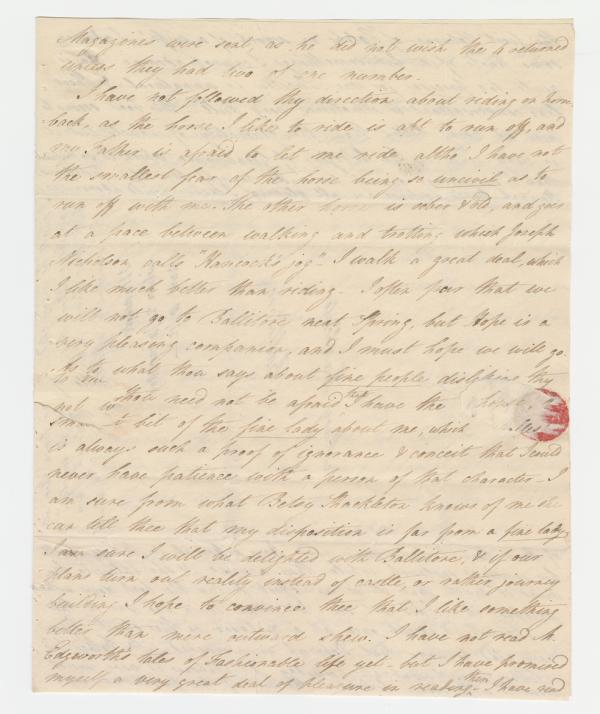 Magazines were sent, as he did not wish the 4 returned
unless they had two of one number.
I have not followed thy direction about riding on horse
back, as the horse I like to ride is apt to run off, and
my Father is afraid to let me ride, altho' I have not
the smallest fear of the horse being so uncivil as to
run off with me. The other horse is sober & old, and goes
at a pace between walking and trotting which Joseph
Nicholson calls "Hancock's jog" – I walk a great deal, which
I like much better than riding – I often fear that we
will not go to Ballitore next Spring, but Hope is a
very pleasing companion, and I must hope we will go.
As to what thou says about fine people disliking thy
thou need not be afraid that I have the
not
bit of the fine lady about me, which
is always such a proof of ignorance & conceit that I could
never have patience with a person of that character – I
am sure from what Betsy Shackleton knows of me she
can tell thee that my disposition is far from a fine lady
I am sure I will be delighted with Ballitore, & if our
plans turn out reality instead of castle, or rather journey
building I hope to convince thee that I like something
better than mere outward shew. I have not read M.
Edgeworth's tales of Fashionable life yet – but I have promised
myself a very great deal of pleasure in reading them – I have read